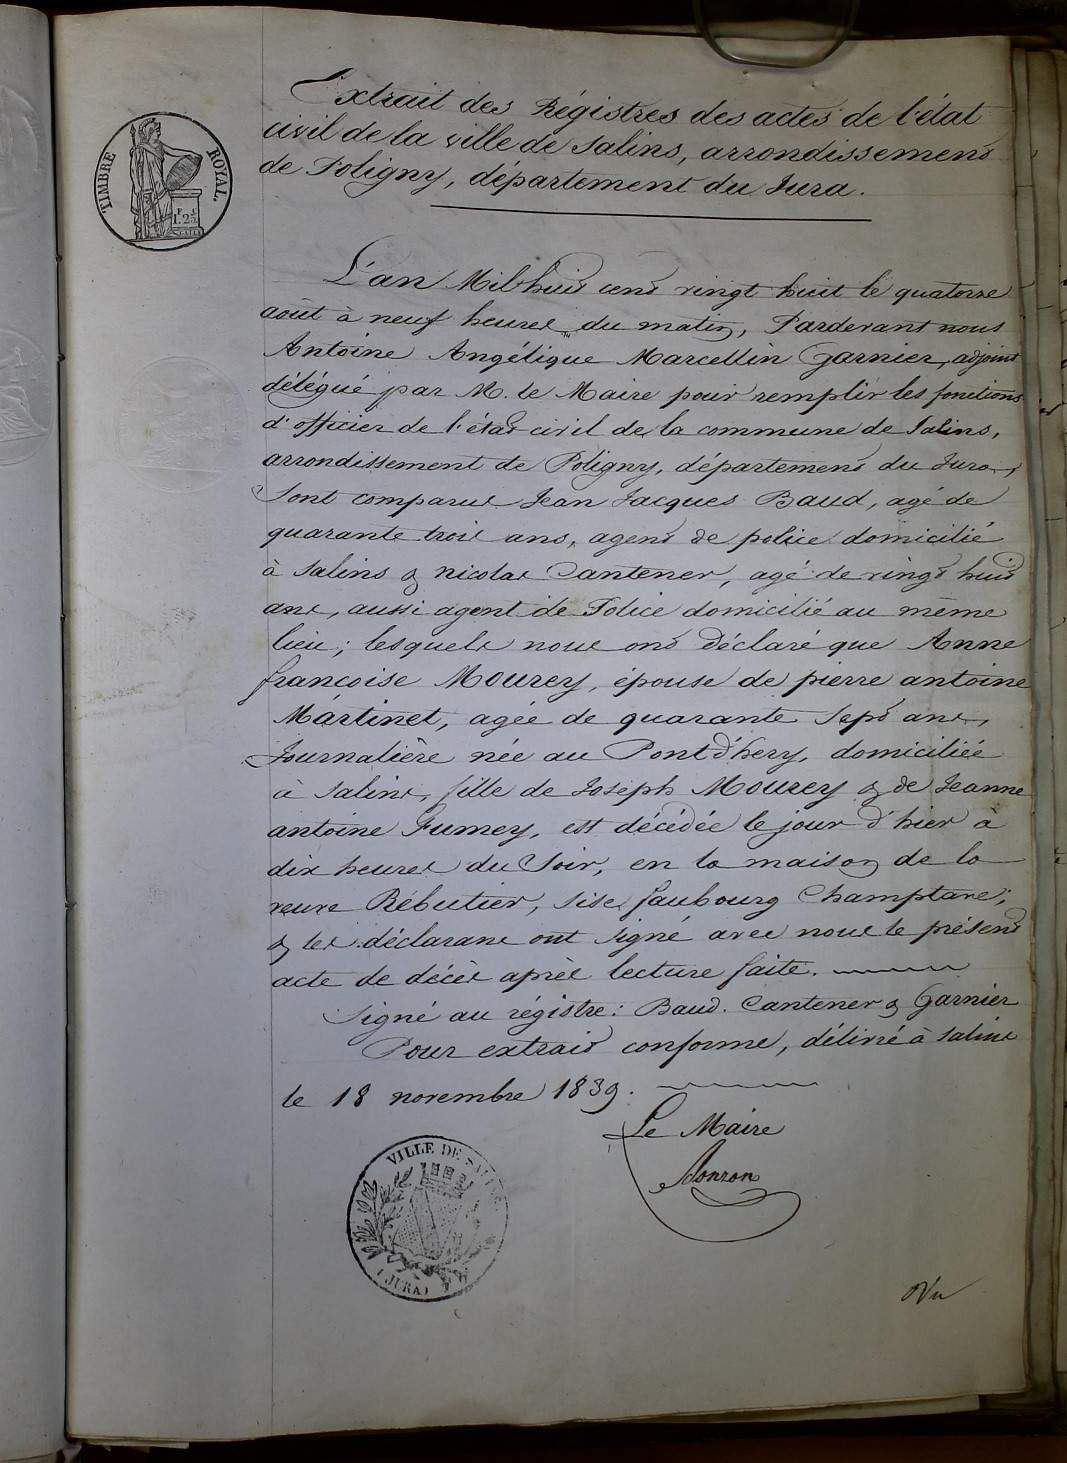 Extrait des Régistres des actes de l'état
civil de la ville de Salins, arrondissement
de Poligny, département du Jura.
TIMBRE ROYAL.
L'an Mil huit cent vingt huit le quatorze
août à neuf heures du matin, Pardevant nous
Antoine Angélique Marcellin Garnier, adjoint
délégué par M. le Maire pour remplir les fonctions
d'officier de l'état civil de la commune de Salins,
arrondissement de Poligny, département du Jura,
Sont comparus Jean Jacques Baud, agé de
quarante trois ans, agent de police domicilié
à Salins & Nicolas Cantener, agé de vingt huit
ans, aussi agent de Police domicilié au même
lieu ; lesquels nous ont déclaré que Anne
françoise Mourey, épouse de pierre antoine
Martinet, agée de quarante sept ans,
Journalière née au Pont d'hery, domiciliée
à Salins, fille de Joseph Mourey & de Jeanne
antoine Fumey, est décédée le jour d'hier à
dix heures du Soir, en la maison de la
veuve Rébutier, sise faubourg Champtave ;
& les déclarans ont signé avec nous le présent
acte de décès après lecture faite.
Signé au régistre : Baud. Cantener & Garnier
Pour extrait conforme, délivré à Salins
le 18 novembre 1839.
Le Maire
VILLE DE SALINS
(JURA)
Vu